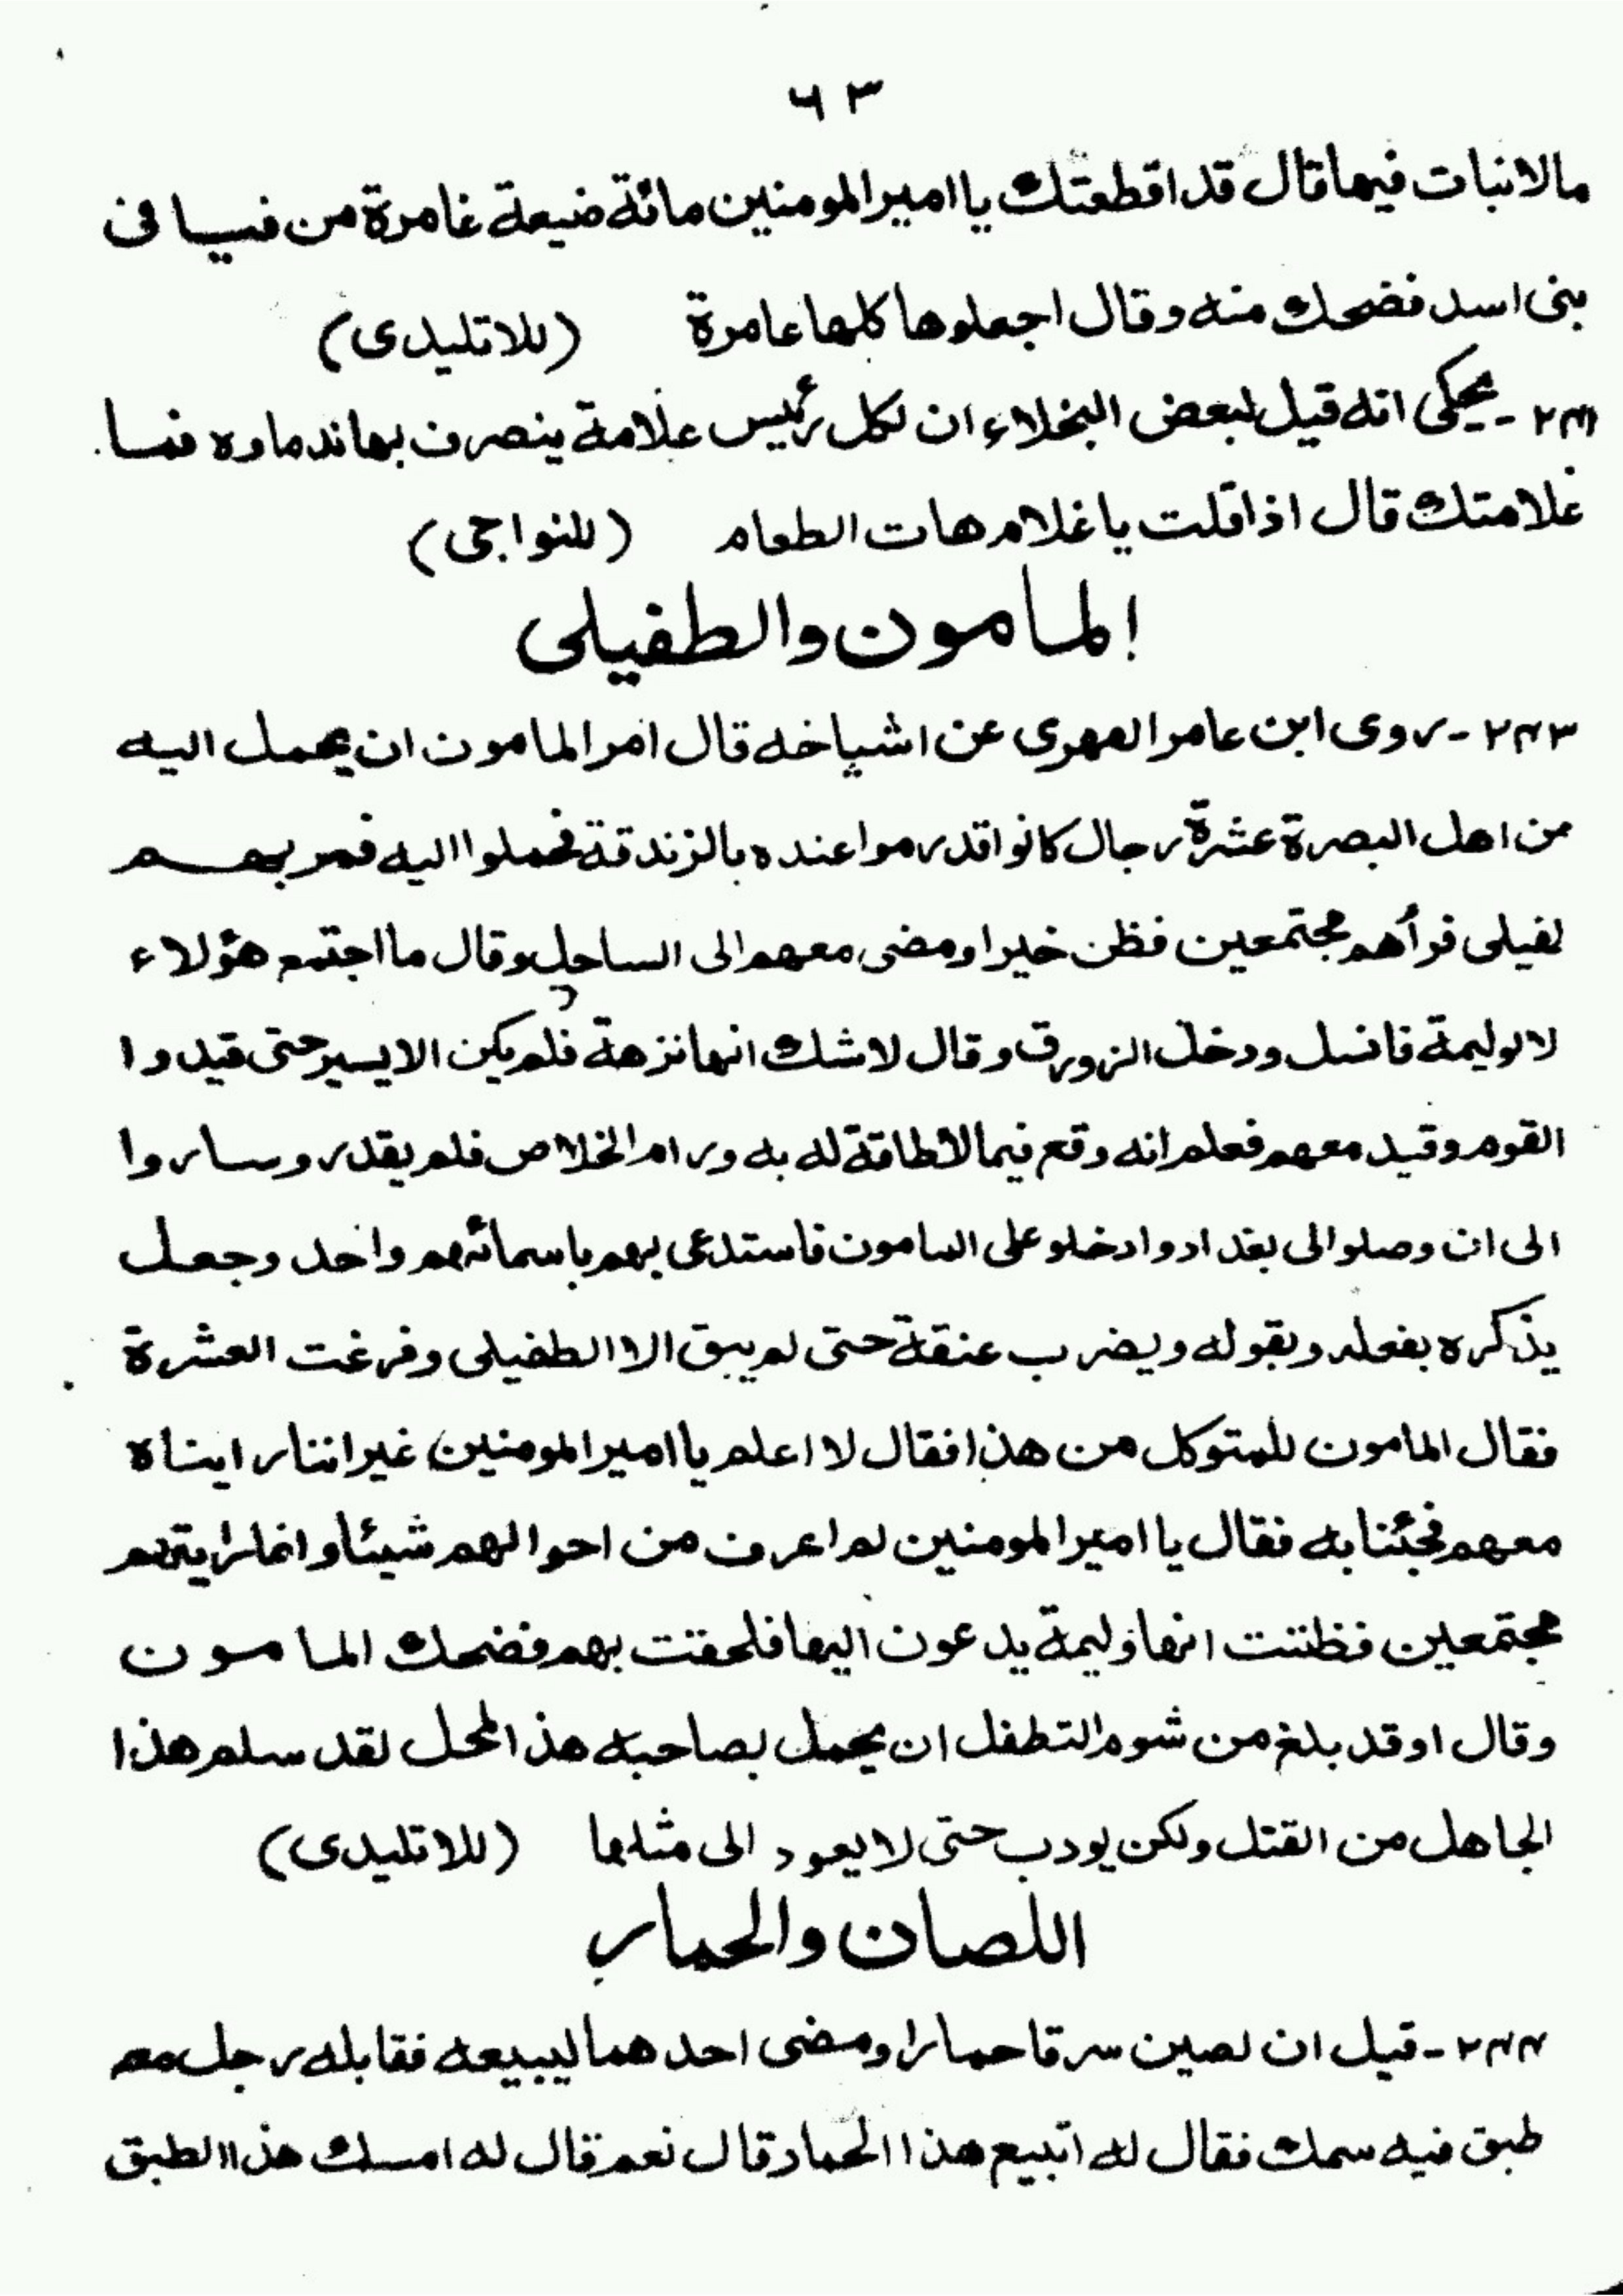 ٦٣
مالانبات فيها قال قد اقطعتك يا امير المومنين مائة ضيعة غامرة من فيسا فى
بنى اسد فضحك منه وقال اجعلوها كلها عامرة (للاتليدى)
يحكى انه قيل لبعض البخلاء ان لكل رئيس علامة ينصرف بها ندماده فما
غلامتك قال اذا قلت يا غلام هات الطعام (للنواجى)
المامون والطفيلى
٢٤٣ - روى ابن عامر الفهرى عن اشياخه قال امر المامون ان يحمل اليه
من اهل البصرة عشرة رجال كانوا قد رموا عنده بالزندقة فحملوا اليه فمر بهم
لفيلى فرأهم مجتمعين فظن خيرا ومضى معهم الى الساحل وقال ما اجتمع هؤلاء
لا لوليمة فانسل ودخل الزورق وقال لاشك انها نزهة فلم يكن الا يسير حتى قيد وا
القوم وقيد معهم فعلم انه وقع فيما لاطاقة له به ورام الخلاص فلم يقدر وساروا
الى ان وصلوا لى بغداد وادخلو على المامون فاستدعى بهم باسمائهم واحد وجعل
يذكره بفعله وبقوله ويضرب عنقة حتى لم يبق الا الطفيلى وفرغت العشرة
فقال المامون للمتوكل من هذا فقال لا اعلم يا امير المومنين غير اننا راينا ه
معهم فجئنا به فقال يا امير المومنين لم اعرف من احوالهم شيئا وانما رايتهم
مجتمعين فظننت انها وليمة يدعون اليها فلحقت بهم فضحك المامون
وقال اوقد بلغ من شوم التطفل ان يحمل بصاحبه هذ المحل لقد سلم هذا
الجاهل من القتل ولكن يودب حتى لا يعود الى مثلها (للاتليدى)
اللصان والحمار
٢٤٤ - قيل ان لصين سرقا حمارا ومضى احدهما ليبيعه فقابله رجل مع
طبق فيه سمك فقال له اتبيع هذا الحمار قال نعم قال له امسك هذا الطبق